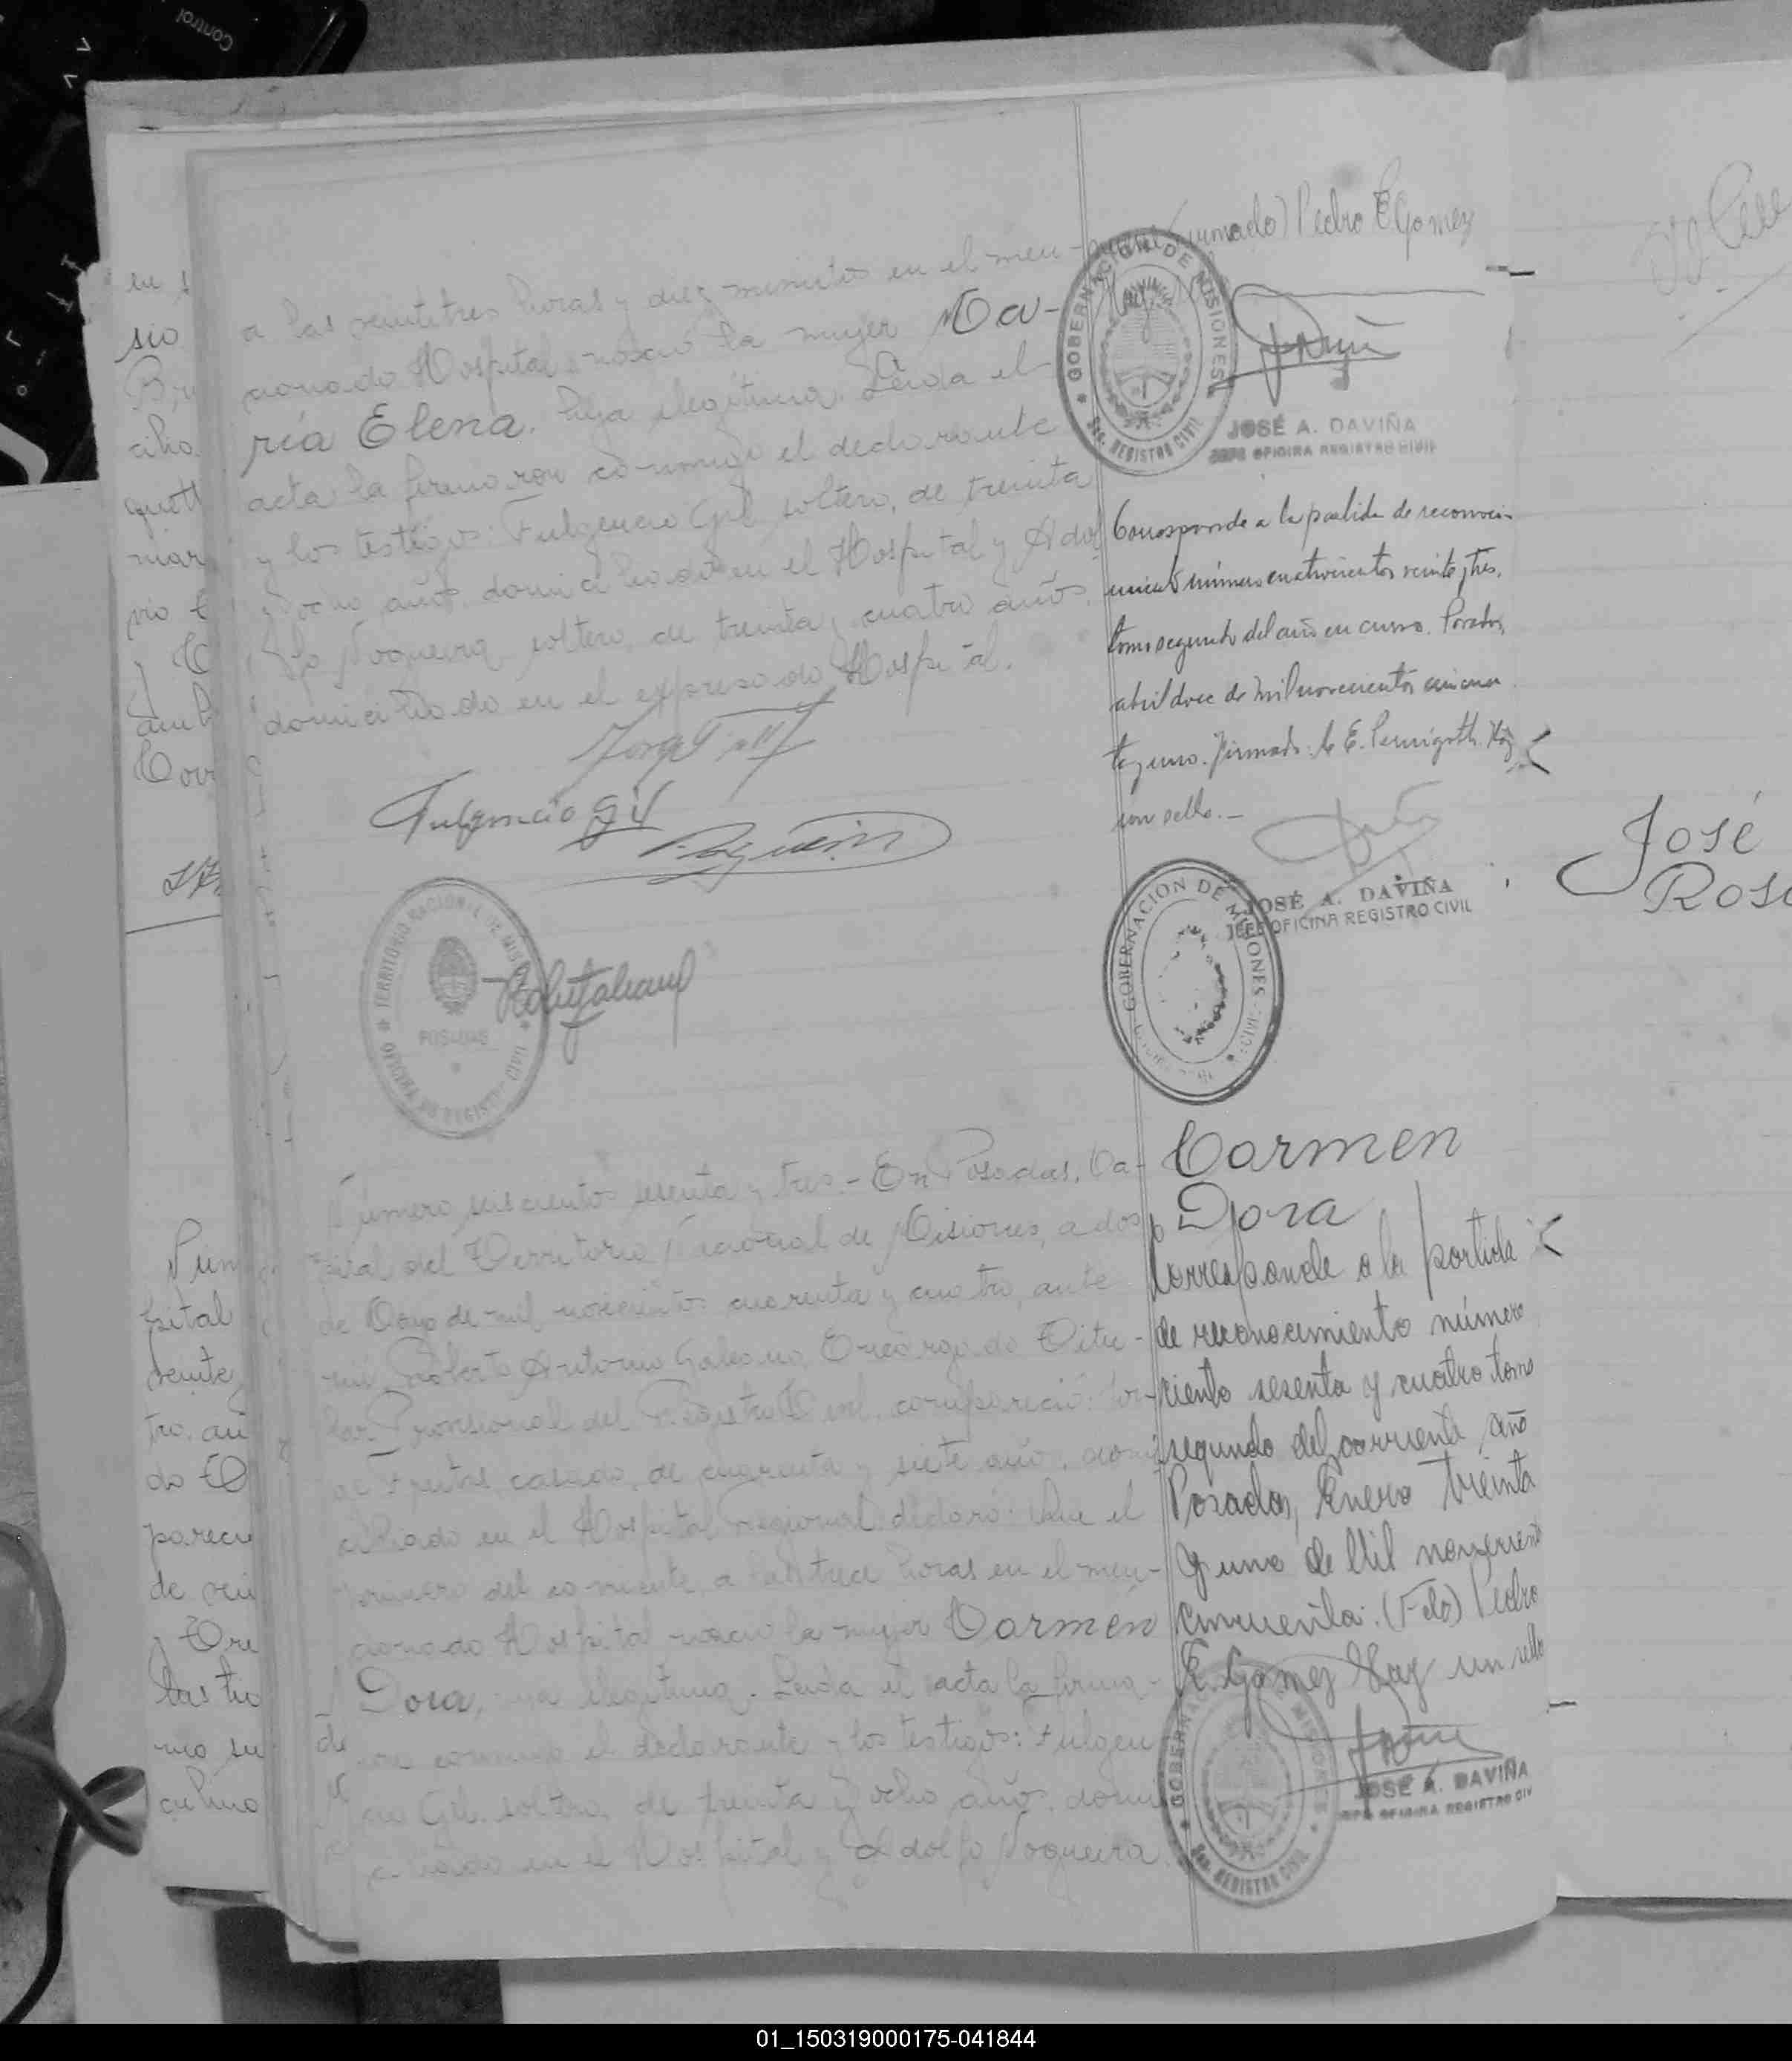 Control
a las veintitres horas y diez minutos en el men-
cionado Hospital nació la mujer Ma-
ría Elena, hija ilegítima. Leida el
acta la firmaron conmigo el declarante
y los testigos: Fulgencio Gil, soltero, de treinta
y ocho años, domiciliado en el Hospital y Adol
fo Nogueira, soltero, de treinta y cuatro años,
domiciliado en el expresado Hospital.
Fulgencio Gil
TERRITORIO NACIONAL DE MISIONES
POSADAS
OFICINA DE REGISTRO CIVIL
Número seiscientos sesenta y tres.- En Posadas, Ca-
pital del Territorio Nacional de Misiones, a dos
de Mayo de mil novecientos cuarenta y cuatro, ante
mi, Roberto Antonio Galeano, Encargado Titu-
lar Provisional del Registro Civil, compareció:
Frutos, casado, de cuarenta y siete años, domi
ciliado en el Hospital Regional declaró: Que el
primero del corriente, a las trece horas en el men-
cionado Hospital nació la mujer Carmen
Dora, hija ilegítima. Leida el acta la firma-
ron conmigo el declarante y los testigos: Fulgen
cio Gil, soltero, de treinta y ocho años, domi
ciliado en el Hospital y Adolfo Nogueira
(firmado) Pedro E Gomez
GOBERNACION DE MISIONES
Sec. REGISTRO CIVIL
JOSÉ A. DAVIÑA
JEFE OFICINA REGISTRO CIVIL
Corresponde a la partida de reconoci-
miento número cuatrocientos veinte y tres,
tomo segundo del año en curso. Posadas,
abril doce de mil novecientos cincuen
ta y uno. Firmado: E. Hay
un sello.-
JOSÉ A. DAVIÑA
JEFE OFICINA REGISTRO CIVIL
GOBERNACION DE MISIONES
Carmen
Dora
Corresponde a la partida
de reconocimiento número
ciento sesenta y cuatro tomo
segundo del corriente año
Posadas, Enero treinta
y uno de Mil novecient
cincuenta. (Fdo) Pedro
E. Gomez Hay un sello
GOBERNACION DE MISIONES
Sec. REGISTRO CIVIL
JOSÉ A. DAVIÑA
JEFE OFICINA REGISTRO CIV
José
Ros
01_150319000175-041844